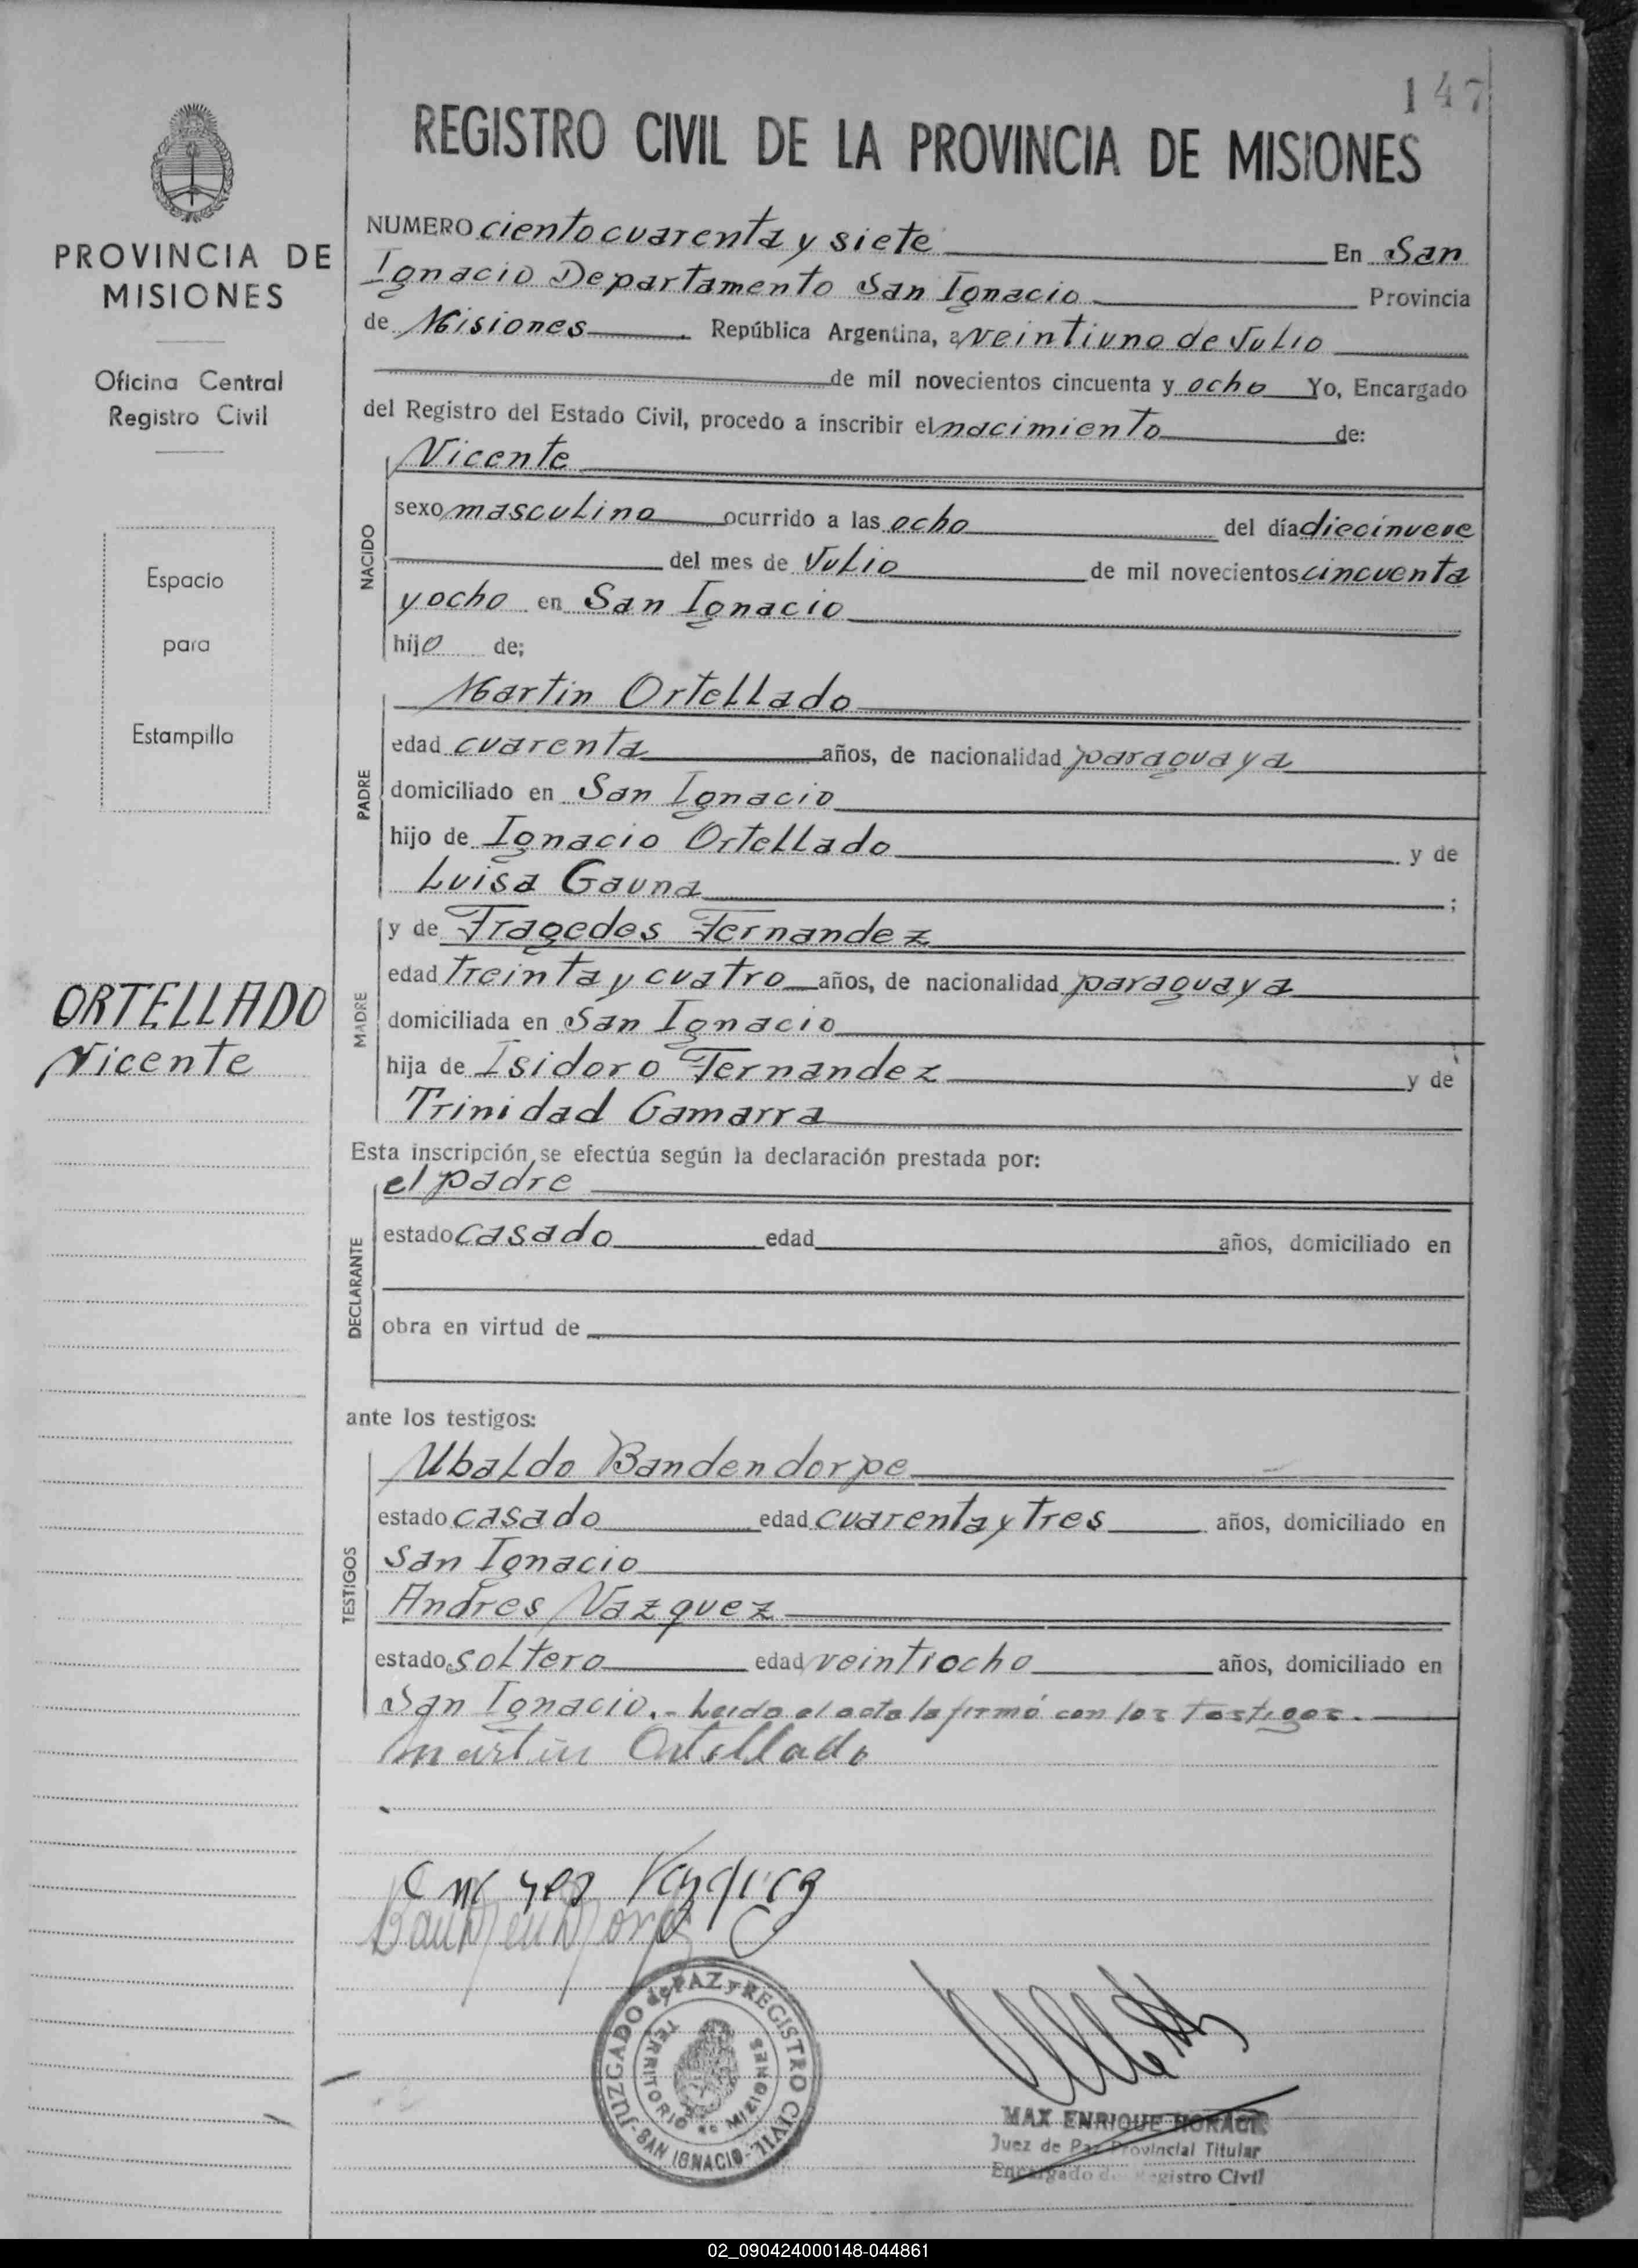 147
REGISTRO CIVIL DE LA PROVINCIA DE MISIONES
PROVINCIA DE
MISIONES
Oficina Central
Registro Civil
Espacio
para
Estampilla
ORTELLADO
Vicente
NUMERO ciento cuarenta y siete En San
Ignacio Departamento San Ignacio Provincia
de Misiones República Argentina, a veintiuno de Julio
de mil novecientos cincuenta y ocho Yo, Encargado
del Registro del Estado Civil, procedo a inscribir el nacimiento de:
NACIDO
Vicente
sexo masculino ocurrido a las ocho del día diecinueve
del mes de Julio de mil novecientos cincuenta
y ocho en San Ignacio
hijo de;
PADRE
Martin Ortellado
edad cuarenta años, de nacionalidad paraguaya
domiciliado en San Ignacio
hijo de Ignacio Ortellado y de
Luisa Gauna ;
MADRE
y de Tragedes Fernandez
edad treinta y cuatro años, de nacionalidad paraguaya
domiciliada en San Ignacio
hija de Isidoro Fernandez y de
Trinidad Gamarra
Esta inscripción se efectúa según la declaración prestada por:
DECLARANTE
el padre
estado casado edad años, domiciliado en
obra en virtud de
ante los testigos:
TESTIGOS
Ubaldo Bandendorpe
estado casado edad cuarenta y tres años, domiciliado en
San Ignacio
Andres Vazquez
estado soltero edad veintiocho años, domiciliado en
San Ignacio.- Leida el acta la firmó con los testigos.
Martin Ortellado
JUZGADO de PAZ y REGISTRO CIVIL
TERRITORIO DE MISIONES
SAN IGNACIO
MAX ENRIQUE
Juez de Paz Provincial Titular
Encargado de Registro Civil
02_090424000148-044861